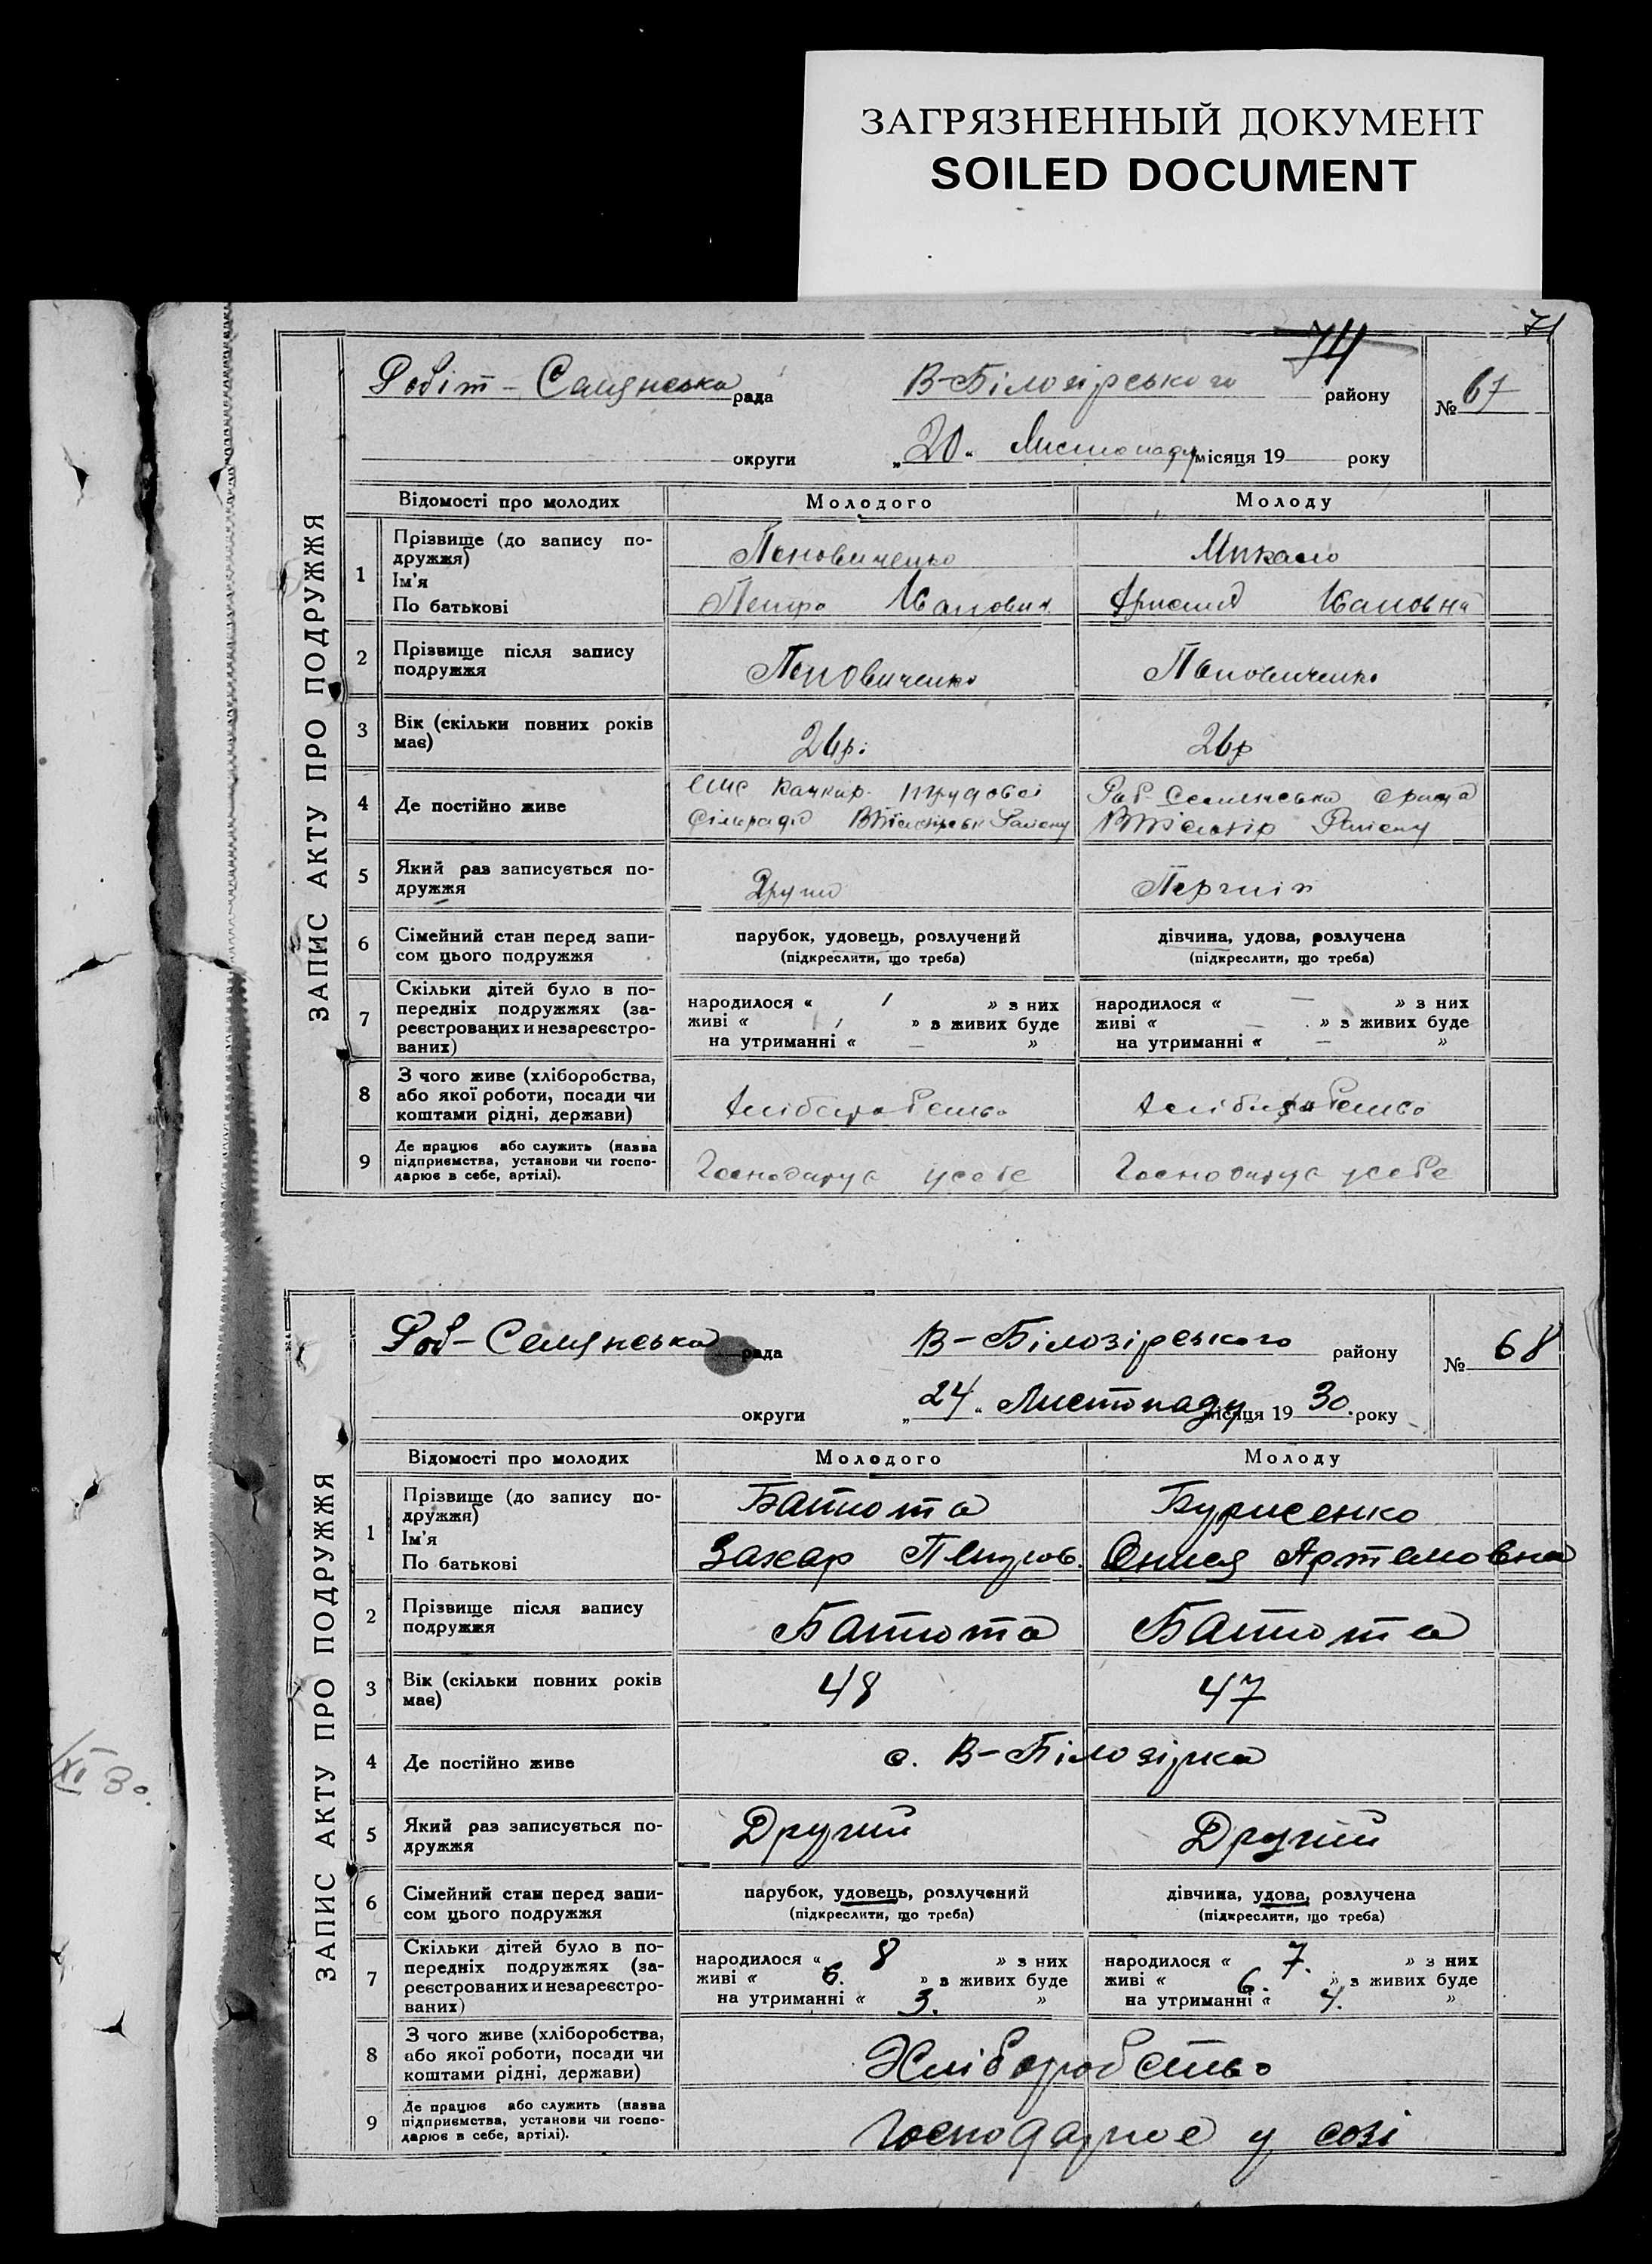 ЗАГРЯЗНЕННЫЙ ДОКУМЕНТ
SOILED DOCUMENT
71
74
ЗАПИС АКТУ ПРО ПОДРУЖЖЯ
Робіт-Селянська рада В-Білозірського району № 67
округи „20“ Листопаду місяця 19 року
Відомості про молодих Молодого Молоду
1 Прізвище (до запису по-
дружжя)
Ім'я
По батькові
Поповиченко Микало
Петро Іванович Івановна
2 Прізвище після запису
подружжя
Поповиченко Поповиченко
3 Вік (скільки повних років
має)
26р. 26р
4 Де постійно живе
Трудової Роб-Селянська
Сільради Району Району
5 Який раз записується по-
дружжя
Другий Перший
6 Сімейний стан перед запи-
сом цього подружжя
парубок, удовець, розлучений дівчина, удова, розлучена
(підкреслити, що треба) (підкреслити, що треба)
7 Скільки дітей було в по-
передніх подружжях (за-
реєстрованих и незареєстро-
ваних)
народилося « 1 » з них народилося « — » з них
живі « 1 » з живих буде живі « — » з живих буде
на утриманні « — » на утриманні « — »
8 З чого живе (хліборобства,
або якої роботи, посади чи
коштами рідні, держави)
Хліборобство Хліборобство
9 Де працює або служить (назва
підприємства, установи чи госпо-
дарює в себе, артілі).
Господарує у себе Господарує у себе
ЗАПИС АКТУ ПРО ПОДРУЖЖЯ
Роб-Селянська рада В-Білозірського району № 68
округи „24“ Листопаду місяця 19 30. року
Відомості про молодих Молодого Молоду
1 Прізвище (до запису по-
дружжя)
Ім'я
По батькові
Батюта Бурисенко
Захар Петров. Онися Артемовна
2 Прізвище після запису
подружжя
Батюта Батюта
3 Вік (скільки повних років
має)
48 47
4 Де постійно живе
с. В-Білозірка
5 Який раз записується по-
дружжя
Другий Другий
6 Сімейний стан перед запи-
сом цього подружжя
парубок, удовець, розлучений дівчина, удова, розлучена
(підкреслити, що треба) (підкреслити, що треба)
7 Скільки дітей було в по-
передніх подружжях (за-
реєстрованих и незареєстро-
ваних)
народилося « 8 » з них народилося « 7. » з них
живі « 6. » з живих буде живі « 6. » з живих буде
на утриманні « 3. » на утриманні « 4. »
8 З чого живе (хліборобства,
або якої роботи, посади чи
коштами рідні, держави)
Хліборобство
9 Де працює або служить (назва
підприємства, установи чи госпо-
дарює в себе, артілі).
Господарює у созі
/XI 30.